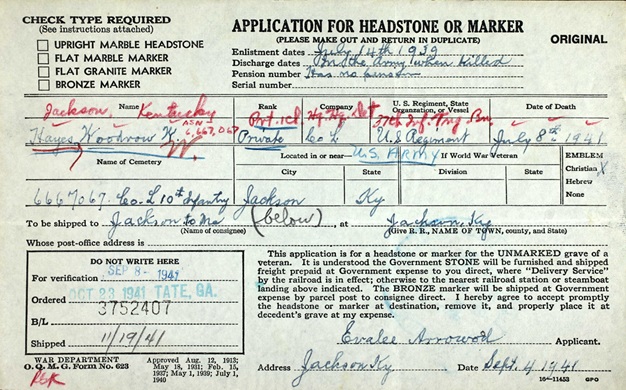 CHECK TYPE REQUIRED
(See instructions attached)
UPRIGHT MARBLE HEADSTONE
FLAT MARBLE MARKER
FLAT GRANITE MARKER
BRONZE MARKER
APPLICATION FOR HEADSTONE OR MARKER
(PLEASE MAKE OUT AND RETURN IN DUPLICATE)
ORIGINAL
Enlistment dates July 14th 1939
Discharge dates In the Army when Killed
Pension number Has no pension
Serial number
Jackson, Name Kentucky Rank Company U.S. Regiment, State Organization, or Vessel Date of Death
ASN 6,667,067 Pvt. 1cl Hq. Hq. Det 37th Inf. Trng. Bn.
Hayes, Woodrow K. Private Co L U.S Regiment July 8th 1941
Name of Cemetery Located in or near— U.S. ARMY If World War Veteran EMBLEM
City State Division State Christian X
Hebrew
None
6667067. Co. L 10th Infantry Jackson Ky
To be shipped to Jackson to Me (below), at Jackson, Ky
(Name of consignee) (Give R. R., NAME OF TOWN, county, and State)
Whose post-office address is
DO NOT WRITE HERE
For verification SEP -8- 1941
Ordered OCT 23 1941 TATE, GA.
3752407
B/L
Shipped 11/19/41
This application is for a headstone or marker for the UNMARKED grave of a
veteran. It is understood the Government STONE will be furnished and shipped
freight prepaid at Government expense to you direct, where “Delivery Service”
by the railroad is in effect; otherwise to the nearest railroad station or steamboat
landing above indicated. The BRONZE marker will be shipped at Government
expense by parcel post to consignee direct. I hereby agree to accept promptly
the headstone or marker at destination, remove it, and properly place it at
decedent's grave at my expense.
Evalee Arrowood Applicant.
Address Jackson Ky Date Sept. 4 1941
WAR DEPARTMENT
O. Q. M. G. Form No. 623
Approved Aug. 12, 1913;
May 18, 1931; Feb. 15,
1937; May 1, 1939; July 1,
1940
16—11453 GPO